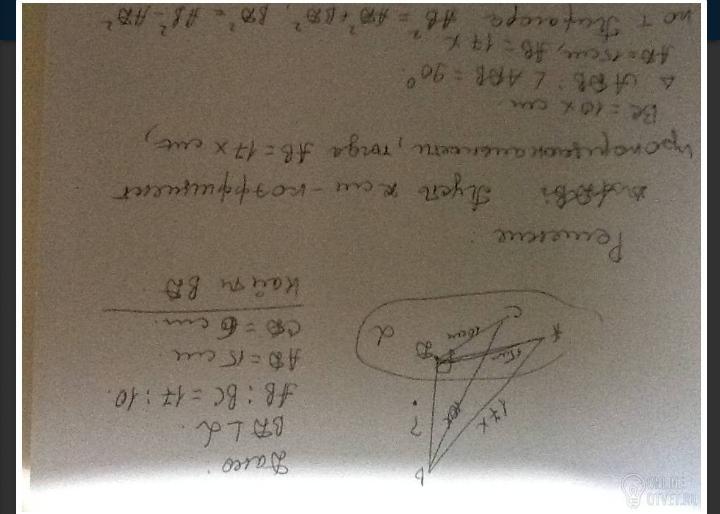 Дано:
BD ⊥ α.
AB : BC = 17 : 10.
AD = 15 см.
CD = 6 см.
Найти BD.
B
?
17x
10x
D
15см
A
C
α
Решение:
Пусть x см - коэффициент
пропорциональности, тогда AB = 17x см,
BC = 10x см.
△ ADB: ∠ADB = 90°
AD = 15 см, AB = 17x
по т. Пифагора AB² = AD² + BD², BD² = AB² - AD²
ONLINE
OTVET.RU